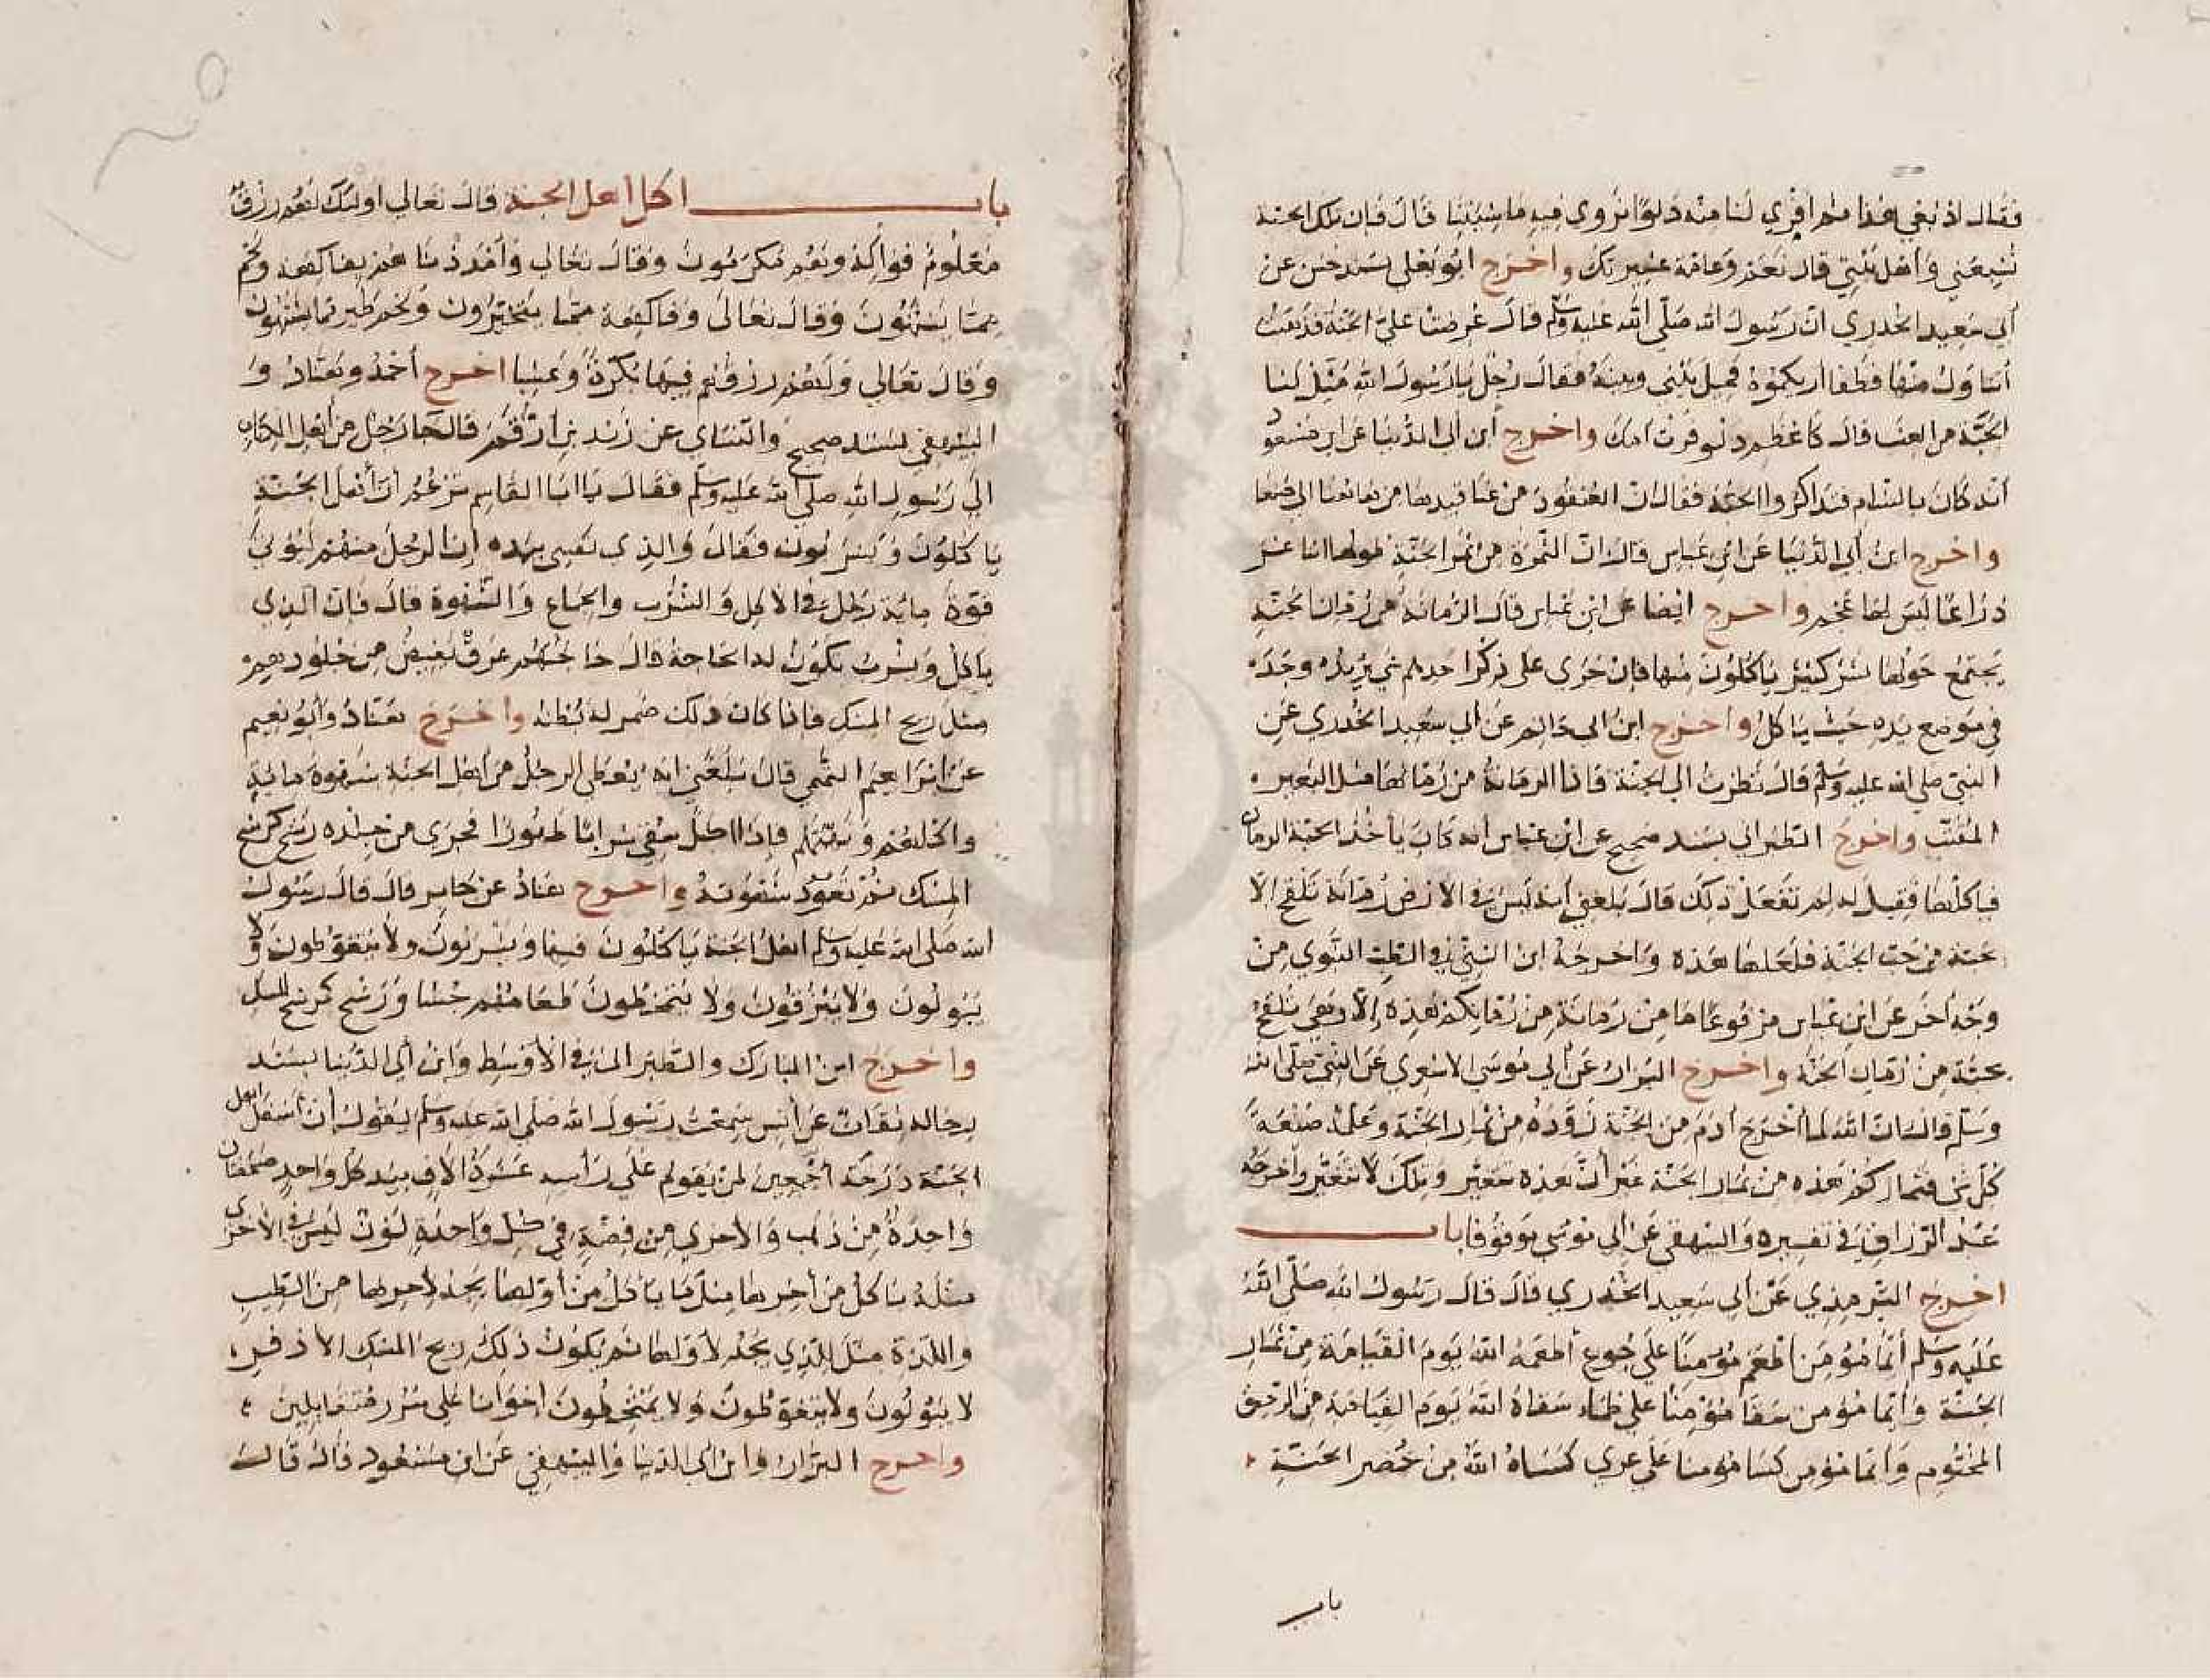 فقال اذبغي هذا ثم افري لنا منه دلوا نروي فيه ماشيتنا قال فان تلك الحبة
تشبعني وأهل بيتي قال نعم وعامة عشيرتك واخرج ابو يعلى بسند حسن عن
أبي سعيد الخدري ان رسول الله صلى الله عليه وسلم قال عرضت علي الجنة فذهبت
أتناول منها قطفا اريكموه فحيل بيني وبينه فقال رجل يا رسول الله مثل لنا
الحبة من العنب قال كأعظم دلو فرت امك واخرج أبن ابي الدنيا عن ابن مسعود
أنه كان بالشام فتذاكروا الجنة فقال ان العنقود من عناقيدها من هاهنا الى صنعا
واخرج ابن أبي الدنيا عن ابن عباس قال ان التمرة من تمر الجنة طولها اثنا عشر
ذراعا ليس لها عجم واخرج ايضا عن ابن عباس قال الرمانة من رمان الجنة
يجتمع حولها بشر كثير يأكلون منها فان جرى على ذكر احدهم شي يريده وجده
في موضع يده حيث يأكل واخرج ابن ابي حاتم عن ابي سعيد الخدري عن
النبي صلى الله عليه وسلم قال نظرت الى الجنة فاذا الرمانة من رمانها مثل البعير
المقتب واخرج الطبراني بسند صحيح عن ابن عباس أنه كان يأخذ الحبة الرمان
فيأكلها فقيل له لم تفعل ذلك قال بلغني أنه ليس في الارض رمانة تلقح الا
بحبة من حب الجنة فلعلها هذه واخرجه ابن السني في الطب النبوي من
وجه آخر عن ابن عباس مرفوعا ما من رمانة من رمانكم هذه إلا وهي تلقح
بحبة من رمان الجنة واخرج البزار عن أبي موسى الاشعري عن النبي صلى الله
وسلم قال ان الله لما أخرج آدم من الجنة زوده من ثمار الجنة وعلمه صنعة
كل شي فثماركم هذه من ثمار الجنة غير أن هذه تتغير وتلك لا تتغير واخرجه
عبد الرزاق في تفسيره والبيهقي عن ابي موسى موقوفا باب
اخرج الترمذي عن أبي سعيد الخدري قال قال رسول الله صلى الله
عليه وسلم أيما مؤمن أطعم مؤمنا على جوع أطعمه الله يوم القيامة من ثمار
الجنة وأيما مؤمن سقا مؤمنا على ظماء سقاه الله يوم القيامة من الرحيق
المختوم وأيما مؤمن كسا مؤمنا على عري كساه الله من خضر الجنة
باب
باب اكل اهل الجنة قال تعالى اولئك لهم رزق
معلوم فواكه وهم مكرمون وقال تعالى وأمددناهم بفاكهة ولحم
مما يشتهون وقال تعالى وفاكهة مما يتخيرون ولحم طير مما يشتهون
وقال تعالى ولهم رزقهم فيها بكرة وعشيا اخرج أحمد وهناد و
البيهقي بسند صحيح والنساي عن زيد بن ارقم قال جا رجل من أهل الكتاب
الى رسول الله صلى الله عليه وسلم فقال يا ابا القاسم تزعم ان أهل الجنة
يأكلون ويشربون فقال والذي نفسي بيده إن الرجل منهم ليؤتى
قوة ماية رجل في الاكل والشرب والجماع والشهوة قال فان الذي
يأكل ويشرب يكون له الحاجة قال حاجتهم عرق يفيض من جلودهم
مثل ريح المسك فاذا كان ذلك ضمر له بطنه واخرج هناد وأبو نعيم
عن ابراهيم التيمي قال بلغني انه يعطى الرجل من أهل الجنة شهوة ماية
وأكلهم ونهمتهم فإذا اكل سقي شرابا طهورا فخرج من جلده رشح كرشح
المسك ثم تعود شهوته واخرج هناد عن جابر قال قال رسول
الله صلى الله عليه وسلم اهل الجنة يأكلون فيها ويشربون ولا يتغوطون ولا
يبولون ولا يبزقون ولا يتمخطون طعامهم جشا ورشح كرشح المسك
واخرج ابن المبارك والطبراني في الأوسط وابن أبي الدنيا بسند
رجاله ثقات عن أنس سمعت رسول الله صلى الله عليه وسلم يقول أن أسفل اهل
الجنة درجة أجمعين لمن يقوم على رأسه عشرة الاف بيد كل واحد صحفتان
واحدة من ذهب والأخرى من فضة في كل واحدة لون ليس في الأخرى
مثله يأكل من أخرها مثل ما يأكل من أولها يجد لآخرها من الطيب
واللذة مثل الذي يجد لأولها ثم يكون ذلك ريح المسك الأذفر
لا يبولون ولا يتغوطون ولا يمتخطون اخوانا على سرر متقابلين
واخرج البزار وابن ابي الدنيا والبيهقي عن ابن مسعود قال قال